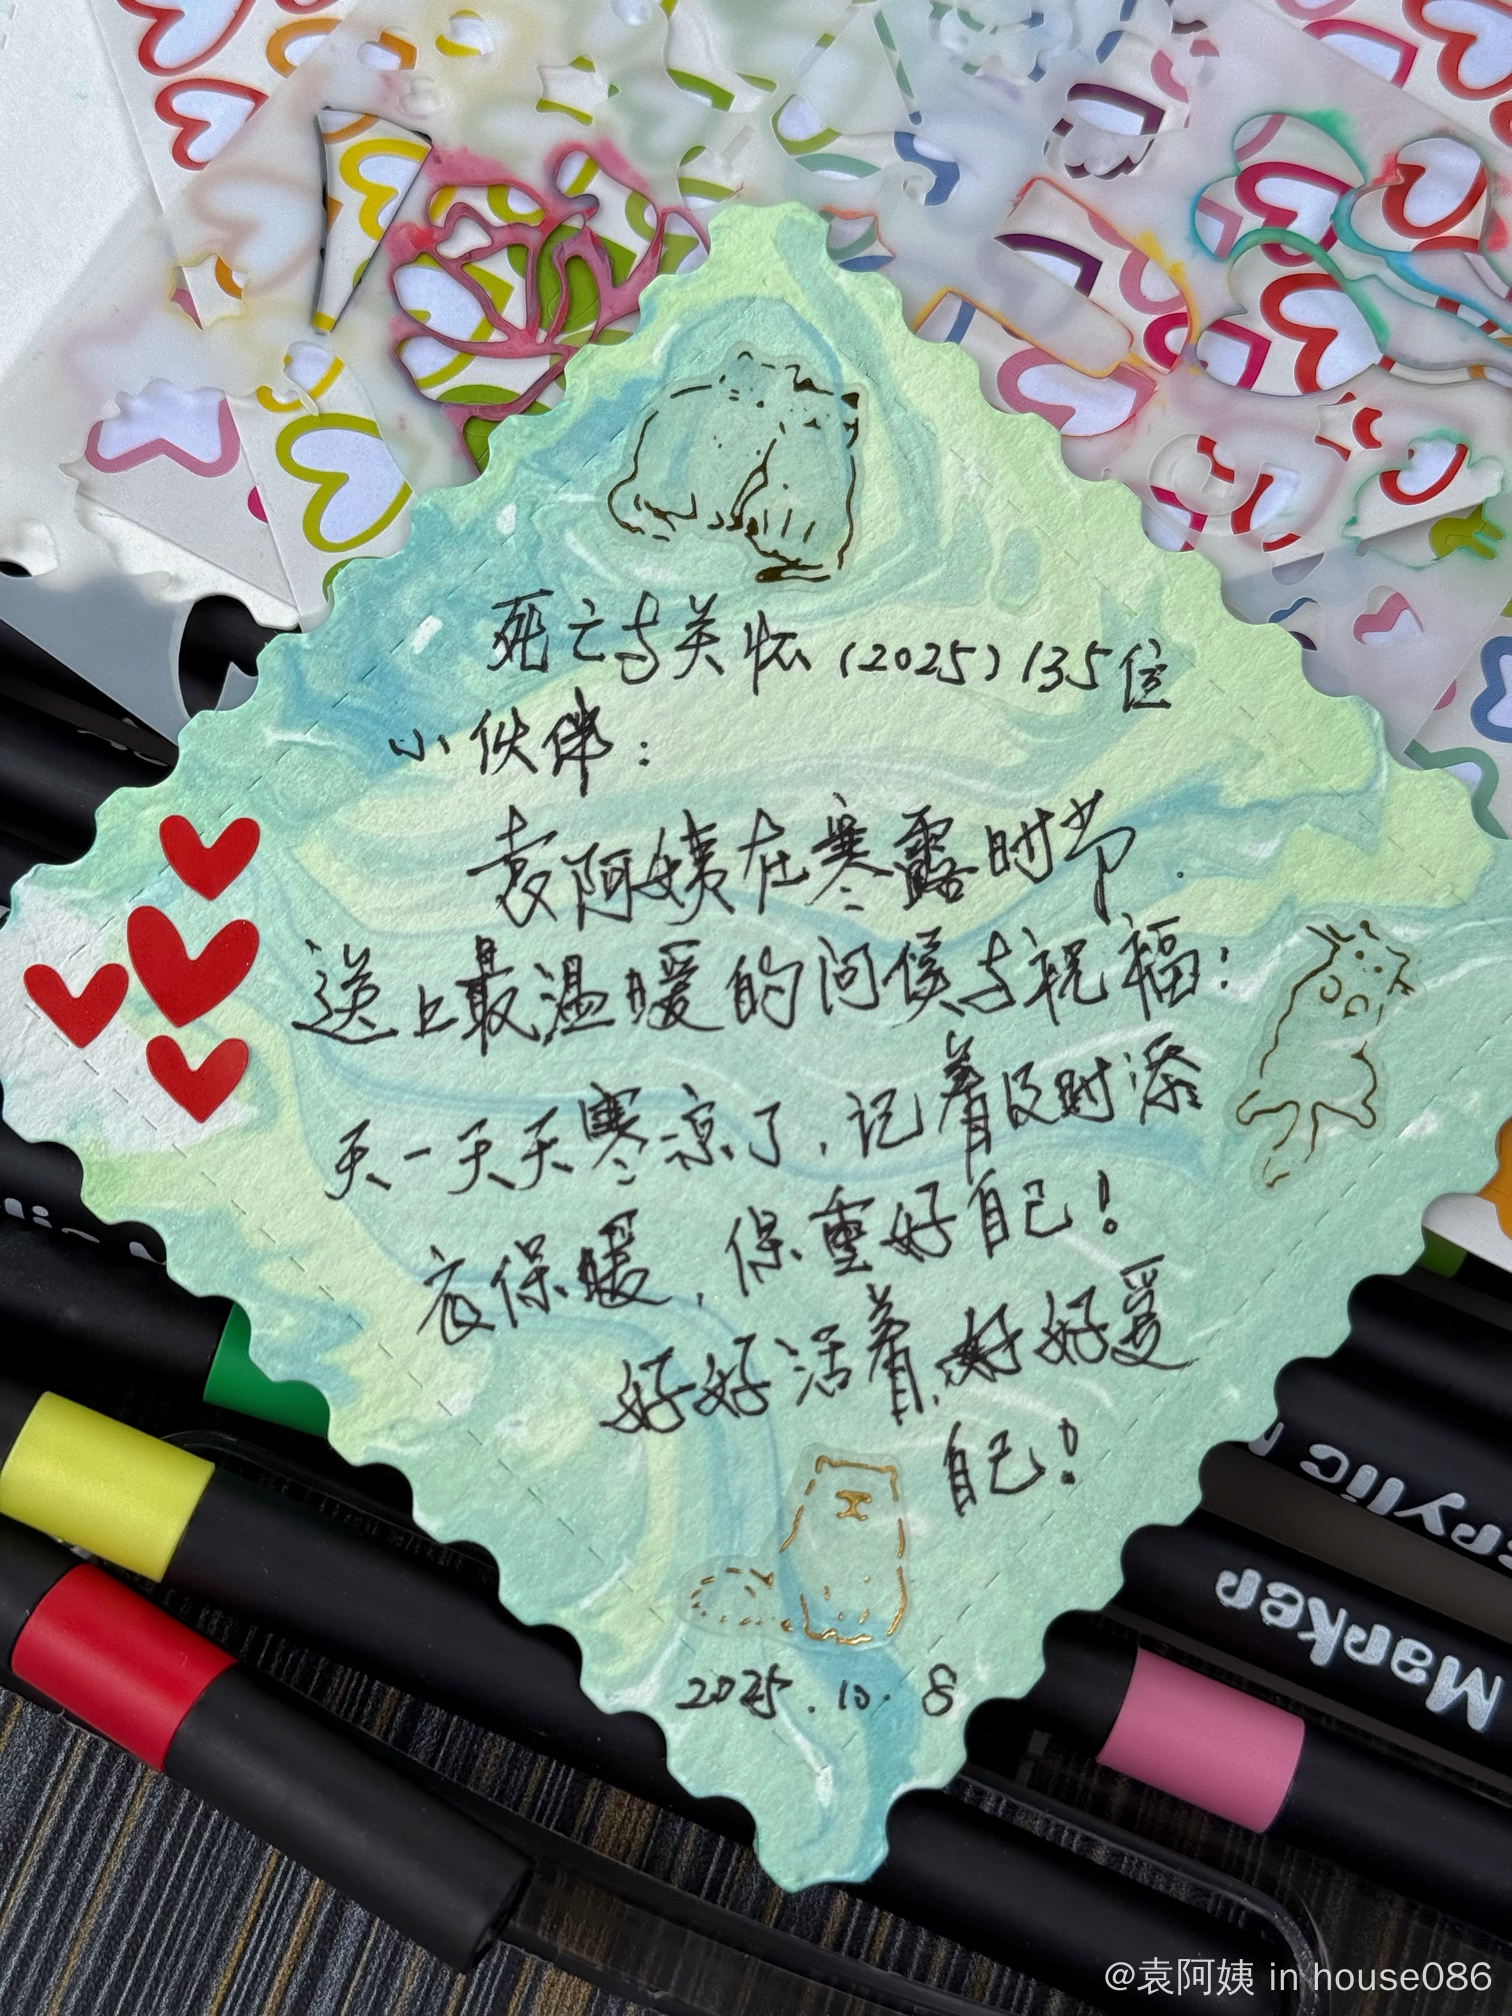 死亡与关怀（2025）135位
小伙伴：
袁阿姨在寒露时节.
送上最温暖的问候与祝福：
天一天天寒凉了，记着及时添
衣保暖，保重好自己！
好好活着，好好爱
自己！
2025.10.8
Acrylic M
Marker
@袁阿姨 in house086